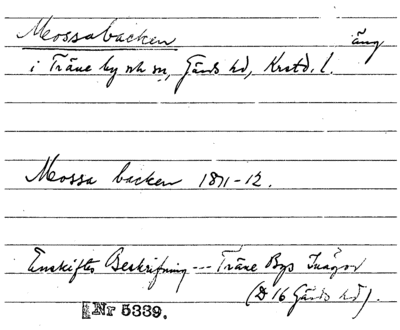 Mossabacken äng
i Träne by och sn, Gärds hd, Krstd. l.
Mossa backen 1811-12.
Enskiftes Beskrifning --- Träne Bys Inägor
(D 16 Gärds hd).
Nr 5339.